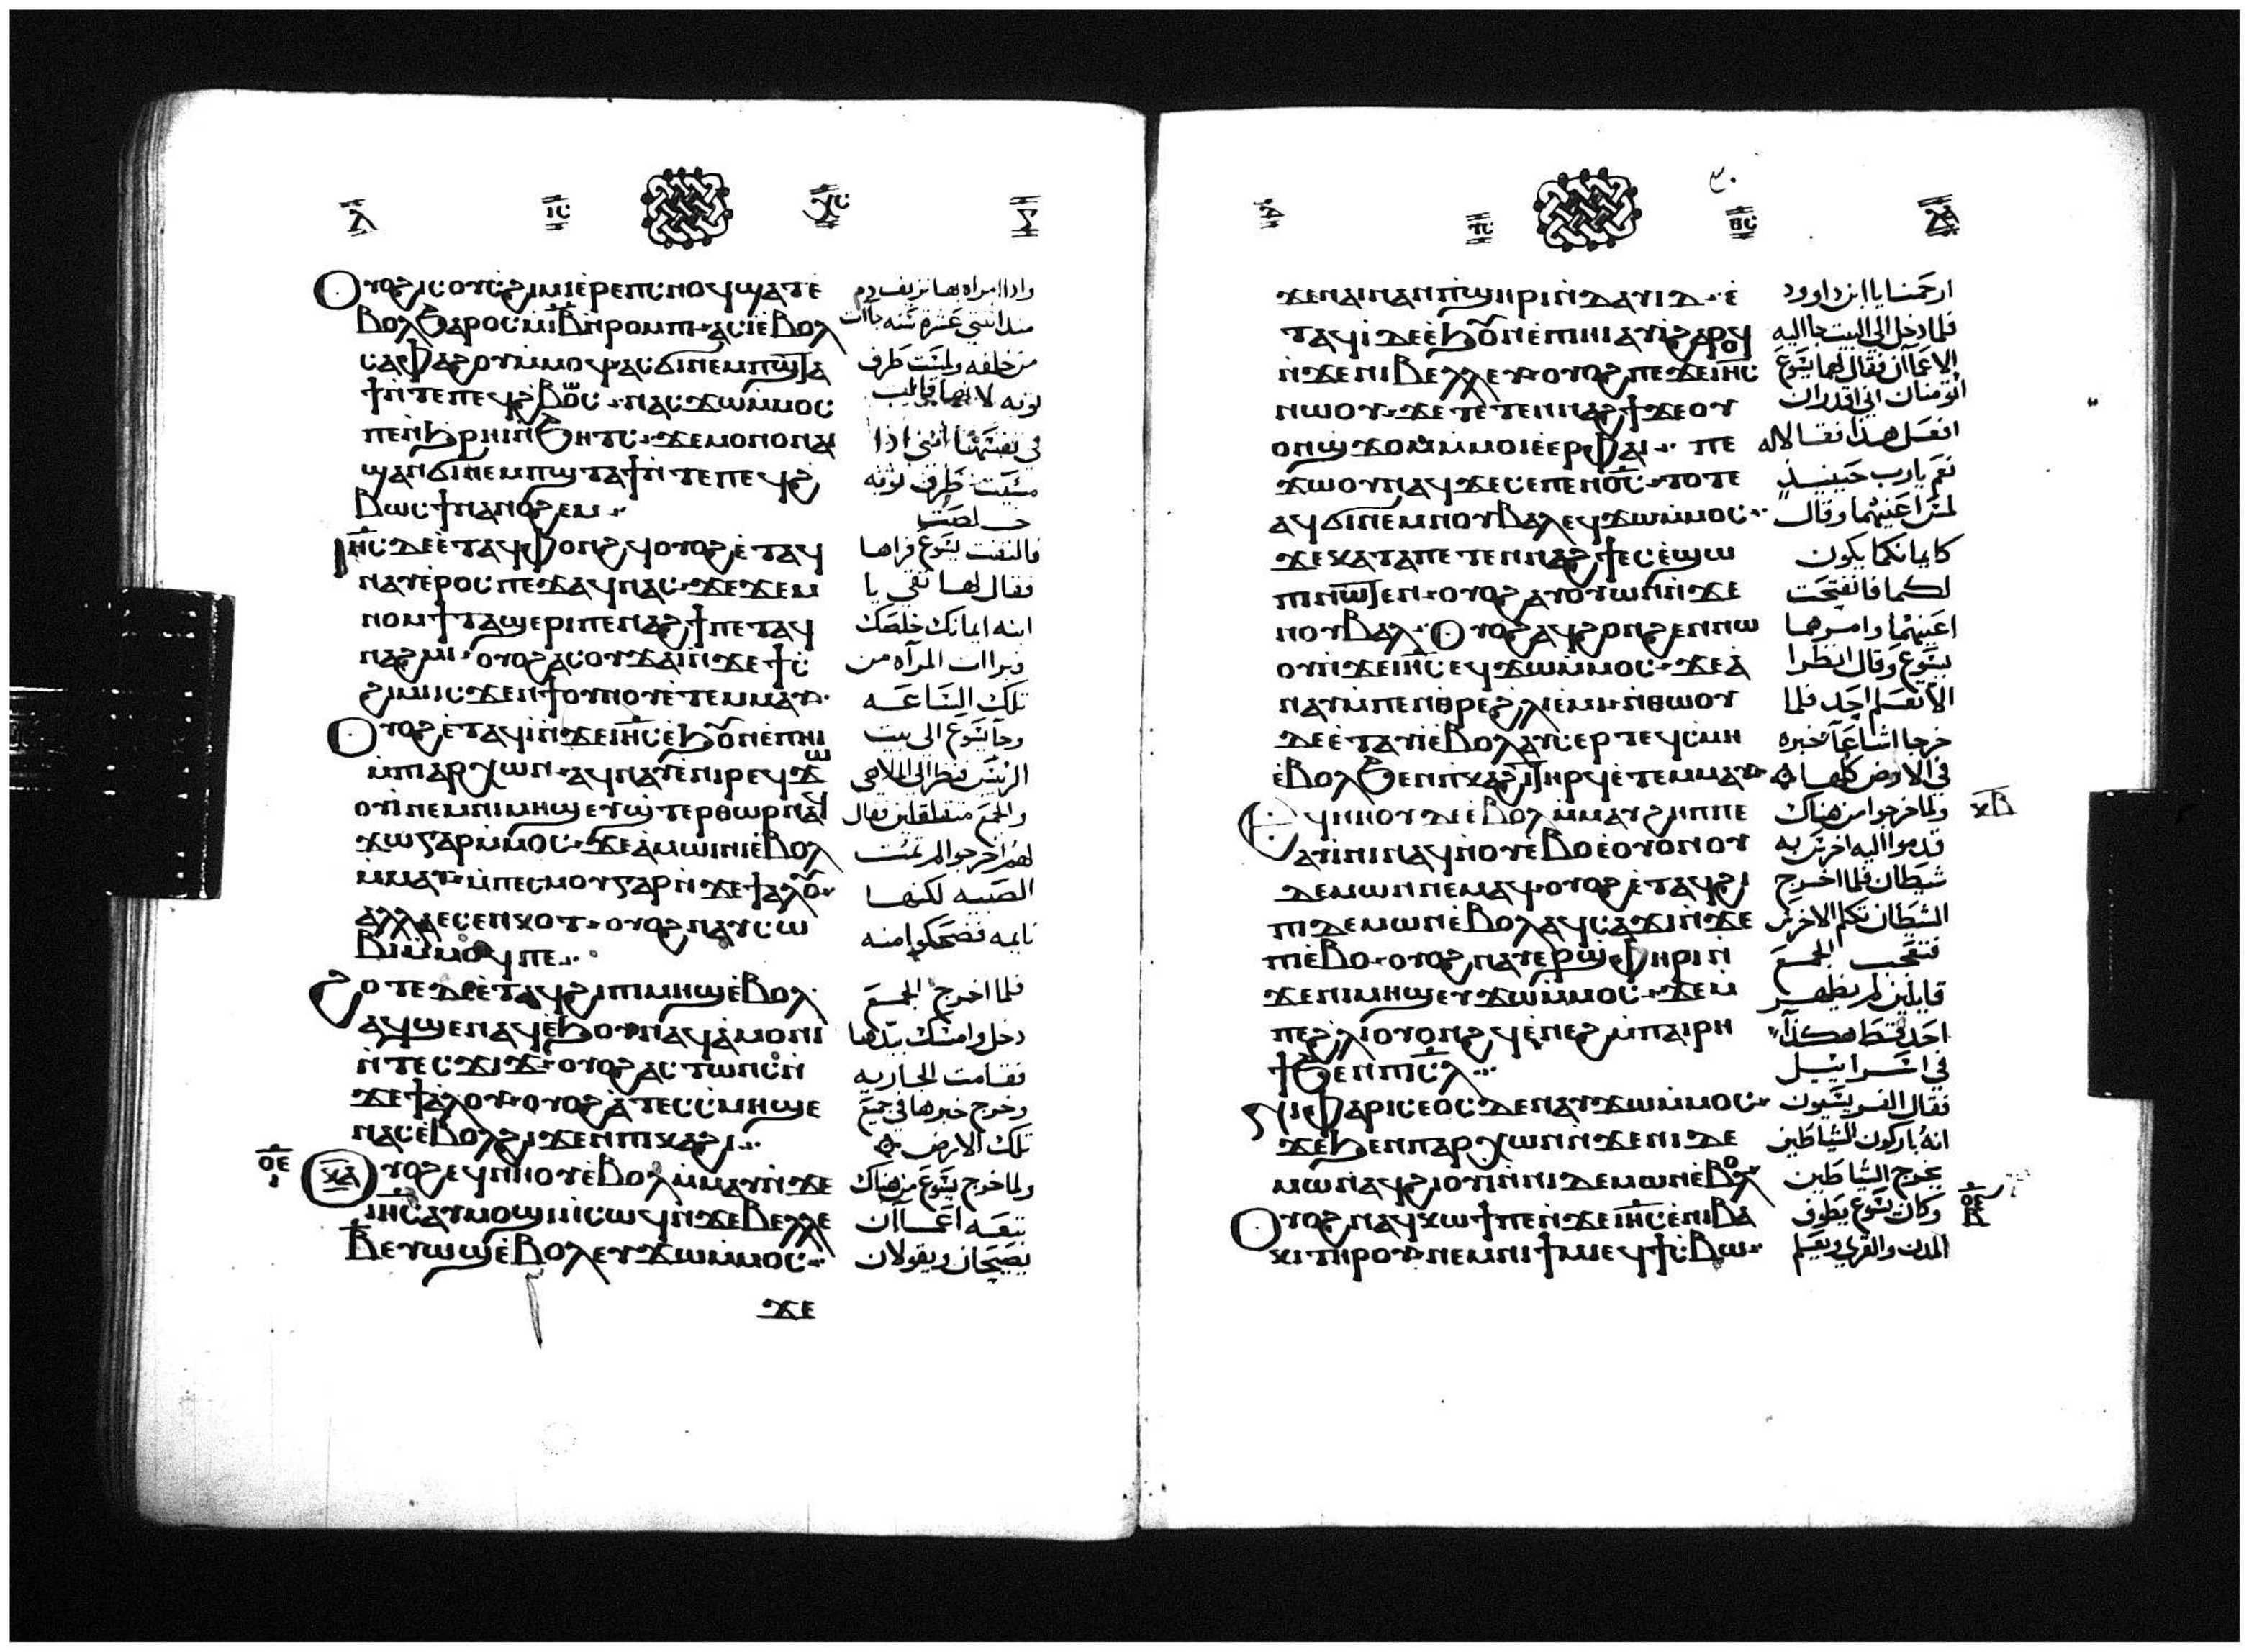 ⲗ̅ ⲓ̅ⲥ̅ ⲭ̅ⲥ̅
Ⲟⲩⲟϩ ⲓⲥ ⲟⲩⲥϩⲓⲙⲓ ⲉⲣⲉ ⲡⲥⲛⲟϥ ϣⲁⲧ ⲉ
ⲃⲟⲗ ϧⲁⲣⲟⲥ ⲙⲓ̅ⲃ̅ ⲛⲣⲟⲙⲡⲓ ⲁⲥⲓ ⲉⲃⲟⲗ
ⲥⲁⲫⲁϩⲟⲩ ⲙⲙⲟϥ ⲁⲥϭⲓ ⲛⲉⲙ ⲡϣⲧⲁ
ϯ ⲛⲧⲉ ⲡⲉϥϩⲃⲟⲥ ⲛⲁⲥϫⲱ ⲙⲙⲟⲥ
ⲡⲉ ⲛϩⲣⲏⲓ ⲛϧⲏⲧⲥ ϫⲉ ⲙⲟⲛⲟⲛ ⲁⲓ
ϣⲁⲛϭⲓ ⲛⲉⲙ ⲡϣⲧⲁϯ ⲛⲧⲉ ⲡⲉϥϩ
ⲃⲱⲥ ϯⲛⲁⲛⲟϩⲉⲙ
Ⲓⲏ̅ⲥ̅ ⲇⲉ ⲉⲧⲁϥⲫⲟⲛϩϥ ⲟⲩⲟϩ ⲉⲧⲁϥ
ⲛⲁⲩ ⲉⲣⲟⲥ ⲡⲉϫⲁϥ ⲛⲁⲥ ϫⲉ ϫⲉⲙ
ⲛⲟⲙϯ ⲧⲁϣⲉⲣⲓ ⲡⲉⲛⲁϩϯ ⲡⲉⲧⲁϥ
ⲛⲁϩⲙⲓ ⲟⲩⲟϩ ⲁⲥⲟⲩϫⲁⲓ ⲛϫⲉ ϯⲥ
ϩⲓⲙⲓ ⲓⲥϫⲉⲛ ϯⲟⲩⲛⲟⲩ ⲉⲧⲉⲙⲙⲁⲩ
Ⲟⲩⲟϩ ⲉⲧⲁϥⲓ ⲛϫⲉ ⲓⲏ̅ⲥ̅ ⲉϧⲟⲩⲛ ⲉⲡⲏⲓ
ⲙⲡⲁⲣⲭⲱⲛ ⲁϥⲛⲁⲩ ⲉⲛⲓⲣⲉϥϫⲱ
ⲟⲩⲓ ⲛⲉⲙ ⲡⲓⲙⲏϣ ⲉⲩϣⲧⲉⲣⲑⲱⲣ ⲛⲁϥ
ϫⲱ ⲅⲁⲣ ⲙⲙⲟⲥ ϫⲉ ⲁⲙⲱⲓⲛⲓ ⲉⲃⲟⲗ
ⲙⲙⲁⲩ ⲙⲡⲉⲥⲙⲟⲩ ⲅⲁⲣ ⲛϫⲉ ϯⲁⲗⲟⲩ
ⲁⲗⲗⲁ ⲉⲥⲉⲛⲕⲟⲧ ⲟⲩⲟϩ ⲛⲁⲩⲥⲱ
ⲃⲓ ⲙⲙⲟϥ ⲡⲉ
Ϩⲟⲧⲉ ⲇⲉ ⲉⲧⲁϥϩⲓ ⲡⲓⲙⲏϣ ⲉⲃⲟⲗ
ⲁϥϣⲉⲛⲁϥ ⲉϧⲟⲩⲛ ⲁϥⲁⲙⲟⲛⲓ
ⲛⲧⲉⲥϫⲓϫ ⲟⲩⲟϩ ⲁⲥⲧⲱⲛⲥ ⲛ
ϫⲉ ϯⲁⲗⲟⲩ ⲟⲩⲟϩ ⲁ ⲧⲉⲥⲥⲙⲏ ϣⲉ
ⲛⲁⲥ ⲉⲃⲟⲗ ϩⲓϫⲉⲛ ⲡⲓⲕⲁϩⲓ
ⲟ̅ⲉ̅ ⲓ
ⲕ̅ⲁ̅ ⲩⲟϩ ⲉϥⲛⲏⲟⲩ ⲉⲃⲟⲗ ⲙⲙⲁⲩ ⲛϫⲉ
ⲓⲏ̅ⲥ̅ ⲁⲩⲙⲟϣⲓ ⲛⲥⲱϥ ⲛϫⲉ ⲃⲉⲗⲗⲉ
ⲃ̅ ⲉⲩⲱϣ ⲉⲃⲟⲗ ⲉⲩϫⲱ ⲙⲙⲟⲥ
ϫⲉ
واذا امراه بها نزيف دم
منذ اثنتي عشرة سنه جاات
من خلفه ولمست طرف
ثوبه لانها قايله
في نفسها انني اذا
مسيت طرف ثوبه
خلصت
فالتفت يسوع فراها
فقال لها ثقي يا
ابنه ايمانك خلصك
وبراات المرآه من
تلك الساعه
وجا يسوع الى بيت
الريس فنظر الى الملاهي
والجمع متقلقلين فقال
لهم اخرجوا لم تمت
الصبيه لكنها
نايمه فضحكوا منه
فلما اخرج الجمع
دخل وامسك بيدها
فقامت الجاريه
وخرج خبرها في جميع
تلك الارض
ولما خرج يسوع من هناك
تبعه اعماان
يصيحان ويقولان
٣٠
ϫⲉ ⲛⲁⲓ ⲛⲁⲛ ⲡϣⲏⲣⲓ ⲛⲇⲁⲩⲓⲇ ⲉ
ⲧⲁϥⲓ ⲇⲉ ⲉϧⲟⲩⲛ ⲉⲡⲏⲓ ⲁⲩⲓ ϩⲁⲣⲟϥ
ⲛϫⲉ ⲛⲓⲃⲉⲗⲗⲉⲩ ⲟⲩⲟϩ ⲡⲉϫⲉ ⲓⲏ̅ⲥ̅
ⲛⲱⲟⲩ ϫⲉ ⲧⲉⲧⲉⲛⲛⲁϩϯ ϫⲉ ⲟⲩ
ⲟⲛϣϫⲟⲙ ⲙⲙⲟⲓ ⲉⲉⲣ ⲫⲁⲓ ⲡⲉ
ϫⲱⲟⲩ ⲛⲁϥ ϫⲉ ⲥⲉ ⲡⲉⲛⲟ̅ⲥ̅ ⲧⲟⲧⲉ
ⲁϥϭⲓ ⲛⲉⲙ ⲛⲟⲩⲃⲁⲗ ⲉϥϫⲱ ⲙⲙⲟⲥ
ϫⲉ ⲕⲁⲧⲁ ⲡⲉⲧⲉⲛⲛⲁϩϯ ⲉⲥⲉϣⲱ
ⲡⲓ ⲛⲱⲧⲉⲛ ⲟⲩⲟϩ ⲁⲩⲟⲩⲱⲛ ⲛϫⲉ
ⲛⲟⲩⲃⲁⲗ Ⲟⲩⲟϩ ⲁϥϩⲟⲛϩⲉⲛ ⲛⲱ
ⲟⲩ ⲛϫⲉ ⲓⲏ̅ⲥ̅ ⲉϥϫⲱ ⲙⲙⲟⲥ ϫⲉ ⲁ
ⲛⲁⲩ ⲙⲡⲉⲛⲑⲣⲉ ϩⲗⲓ ⲉⲙⲓ ⲛⲑⲱⲟⲩ
ⲇⲉ ⲉⲧⲁⲩⲓ ⲉⲃⲟⲗ ⲁⲩⲥⲉⲣ ⲧⲉϥⲥⲙⲏ
ⲉⲃⲟⲗ ϧⲉⲛ ⲡⲕⲁϩⲓ ⲧⲏⲣϥ ⲉⲧⲉⲙⲙⲁⲩ
ⲕ̅ⲃ̅
Ⲉϥⲛⲏⲟⲩ ⲇⲉ ⲉⲃⲟⲗ ⲙⲙⲁⲩ ϩⲏⲡⲡⲉ
ⲁⲩⲓⲛⲓ ⲛⲁϥ ⲛⲟⲩⲉⲃⲟ ⲉⲟⲩⲟⲛ ⲟⲩ
ⲇⲉⲙⲱⲛ ⲛⲉⲙⲁϥ ⲟⲩⲟϩ ⲉⲧⲁϥϩⲓ
ⲡⲓⲇⲉⲙⲱⲛ ⲉⲃⲟⲗ ⲁϥⲥⲁϫⲓ ⲛϫⲉ
ⲡⲓⲉⲃⲟ ⲟⲩⲟϩ ⲛⲁⲩⲉⲣϣⲫⲏⲣⲓ ⲛ
ϫⲉ ⲛⲓⲙⲏϣ ⲉⲩϫⲱ ⲙⲙⲟⲥ ϫⲉ ⲙ
ⲡⲉ ϩⲗⲓ ⲟⲩⲟⲛϩϥ ⲉⲛⲉϩ ⲙⲡⲁⲓⲣⲏ
ϯ ϧⲉⲛ ⲡⲓⲥ̅ⲗ̅
Ⲛⲓⲫⲁⲣⲓⲥⲉⲟⲥ ⲇⲉ ⲛⲁⲩϫⲱ ⲙⲙⲟⲥ
ϫⲉ ϧⲉⲛ ⲡⲁⲣⲭⲱⲛ ⲛϫⲉ ⲛⲓⲇⲉ
ⲙⲱⲛ ⲁϥϩⲓⲟⲩⲓ ⲛⲛⲓⲇⲉⲙⲱⲛ ⲉⲃⲟⲗ
Ⲟⲩⲟϩ ⲛⲁϥⲕⲱϯ ⲡⲉ ⲛϫⲉ ⲓⲏ̅ⲥ̅ ⲉⲛⲓⲃⲁ
ⲕⲓ ⲧⲏⲣⲟⲩ ⲛⲉⲙ ⲛⲓϯⲙⲓ ⲉϥϯⲥⲃⲱ
ارحمنا يا ابن داوود
فلما دخل الى البيت جاا اليه
الاعماآن فقال لهما يسوع
اتؤمنان اني اقدر ان
افعل هذا فقالا له
نعم يارب حينيذٍ
لمس اعينهما وقال
كايمانكما يكون
لكما فانفتحت
اعينهما وامرهما
يسوع وقال انظرا
الا تعلم احد فلما
خرجا اشاعا خبره
في الارض كلها
ولما خرجوا من هناك
قدموا اليه اخرس به
شيطان فلما اخرج
الشيطان تكلم الاخرس
فتعجب الجمع
قايلين لم يظهر
احد قط هكذا
في اسراييل
فقال الفريسيون
انه باركون الشياطين
يخرج الشياطين
وكان يسوع يطوف
المدن والقرى ويعلم